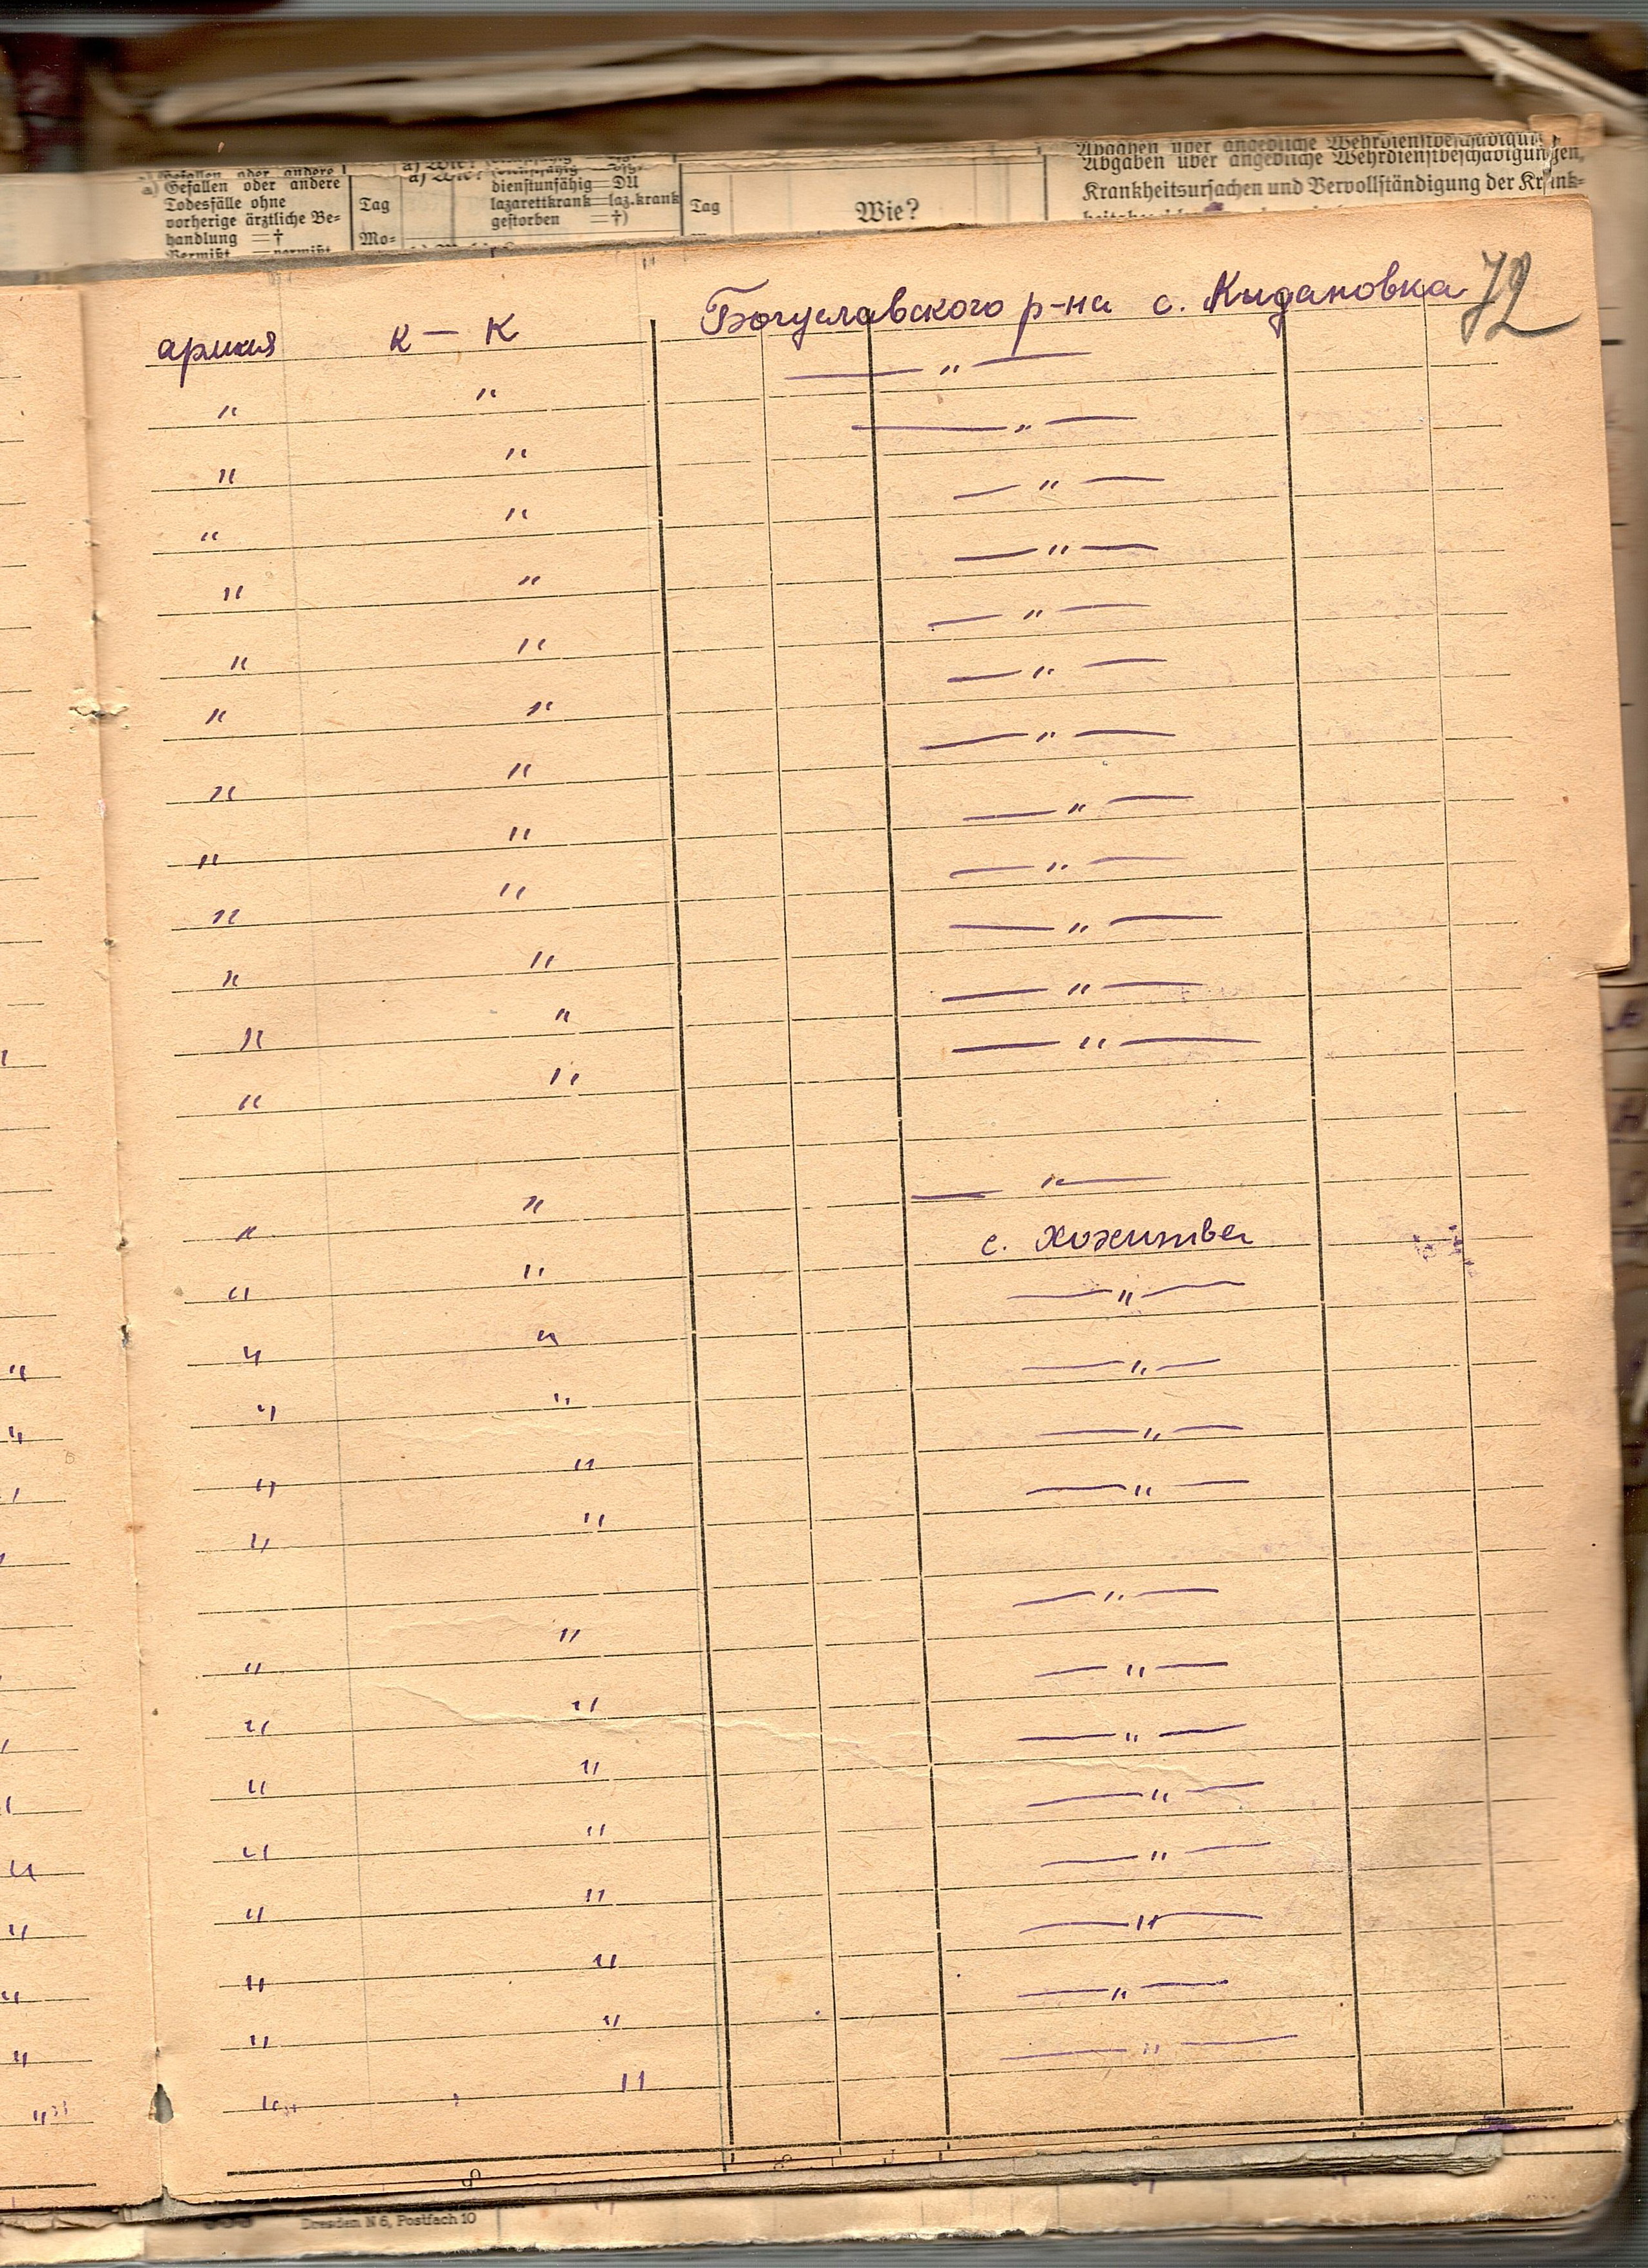 Gefallen oder andere
Todesfälle ohne
vorherige ärztliche Be-
handlung = †
Vermißt = vermißt
Tag
Mo-
a) Wie?
dienstunfähig = DU
lazarettkrank = laz.krank
gestorben = †)
Tag
Wie?
Abgaben über angebliche Wehrdienstbeschädigungen,
Krankheitsursachen und Vervollständigung der Krank-
72
армия к — к Богуславского р-на с. Кидановка
" " — " —
" " — " —
" " — " —
" " — " —
" " — " —
" " — " —
" " — " —
" " — " —
" " — " —
" " — " —
" " — " —
" " — " —
" " — " —
с. Хохитва
" " — " —
" " — " —
" " — " —
" " — " —
" " — " —
" " — " —
" " — " —
" " — " —
" " — " —
" " — " —
" " — " —
" " — " —
Dresden N 6, Postfach 10